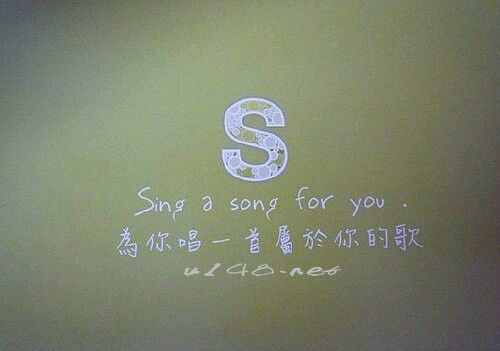 S
Sing a song for you .
為你唱一首屬於你的歌
u148.net